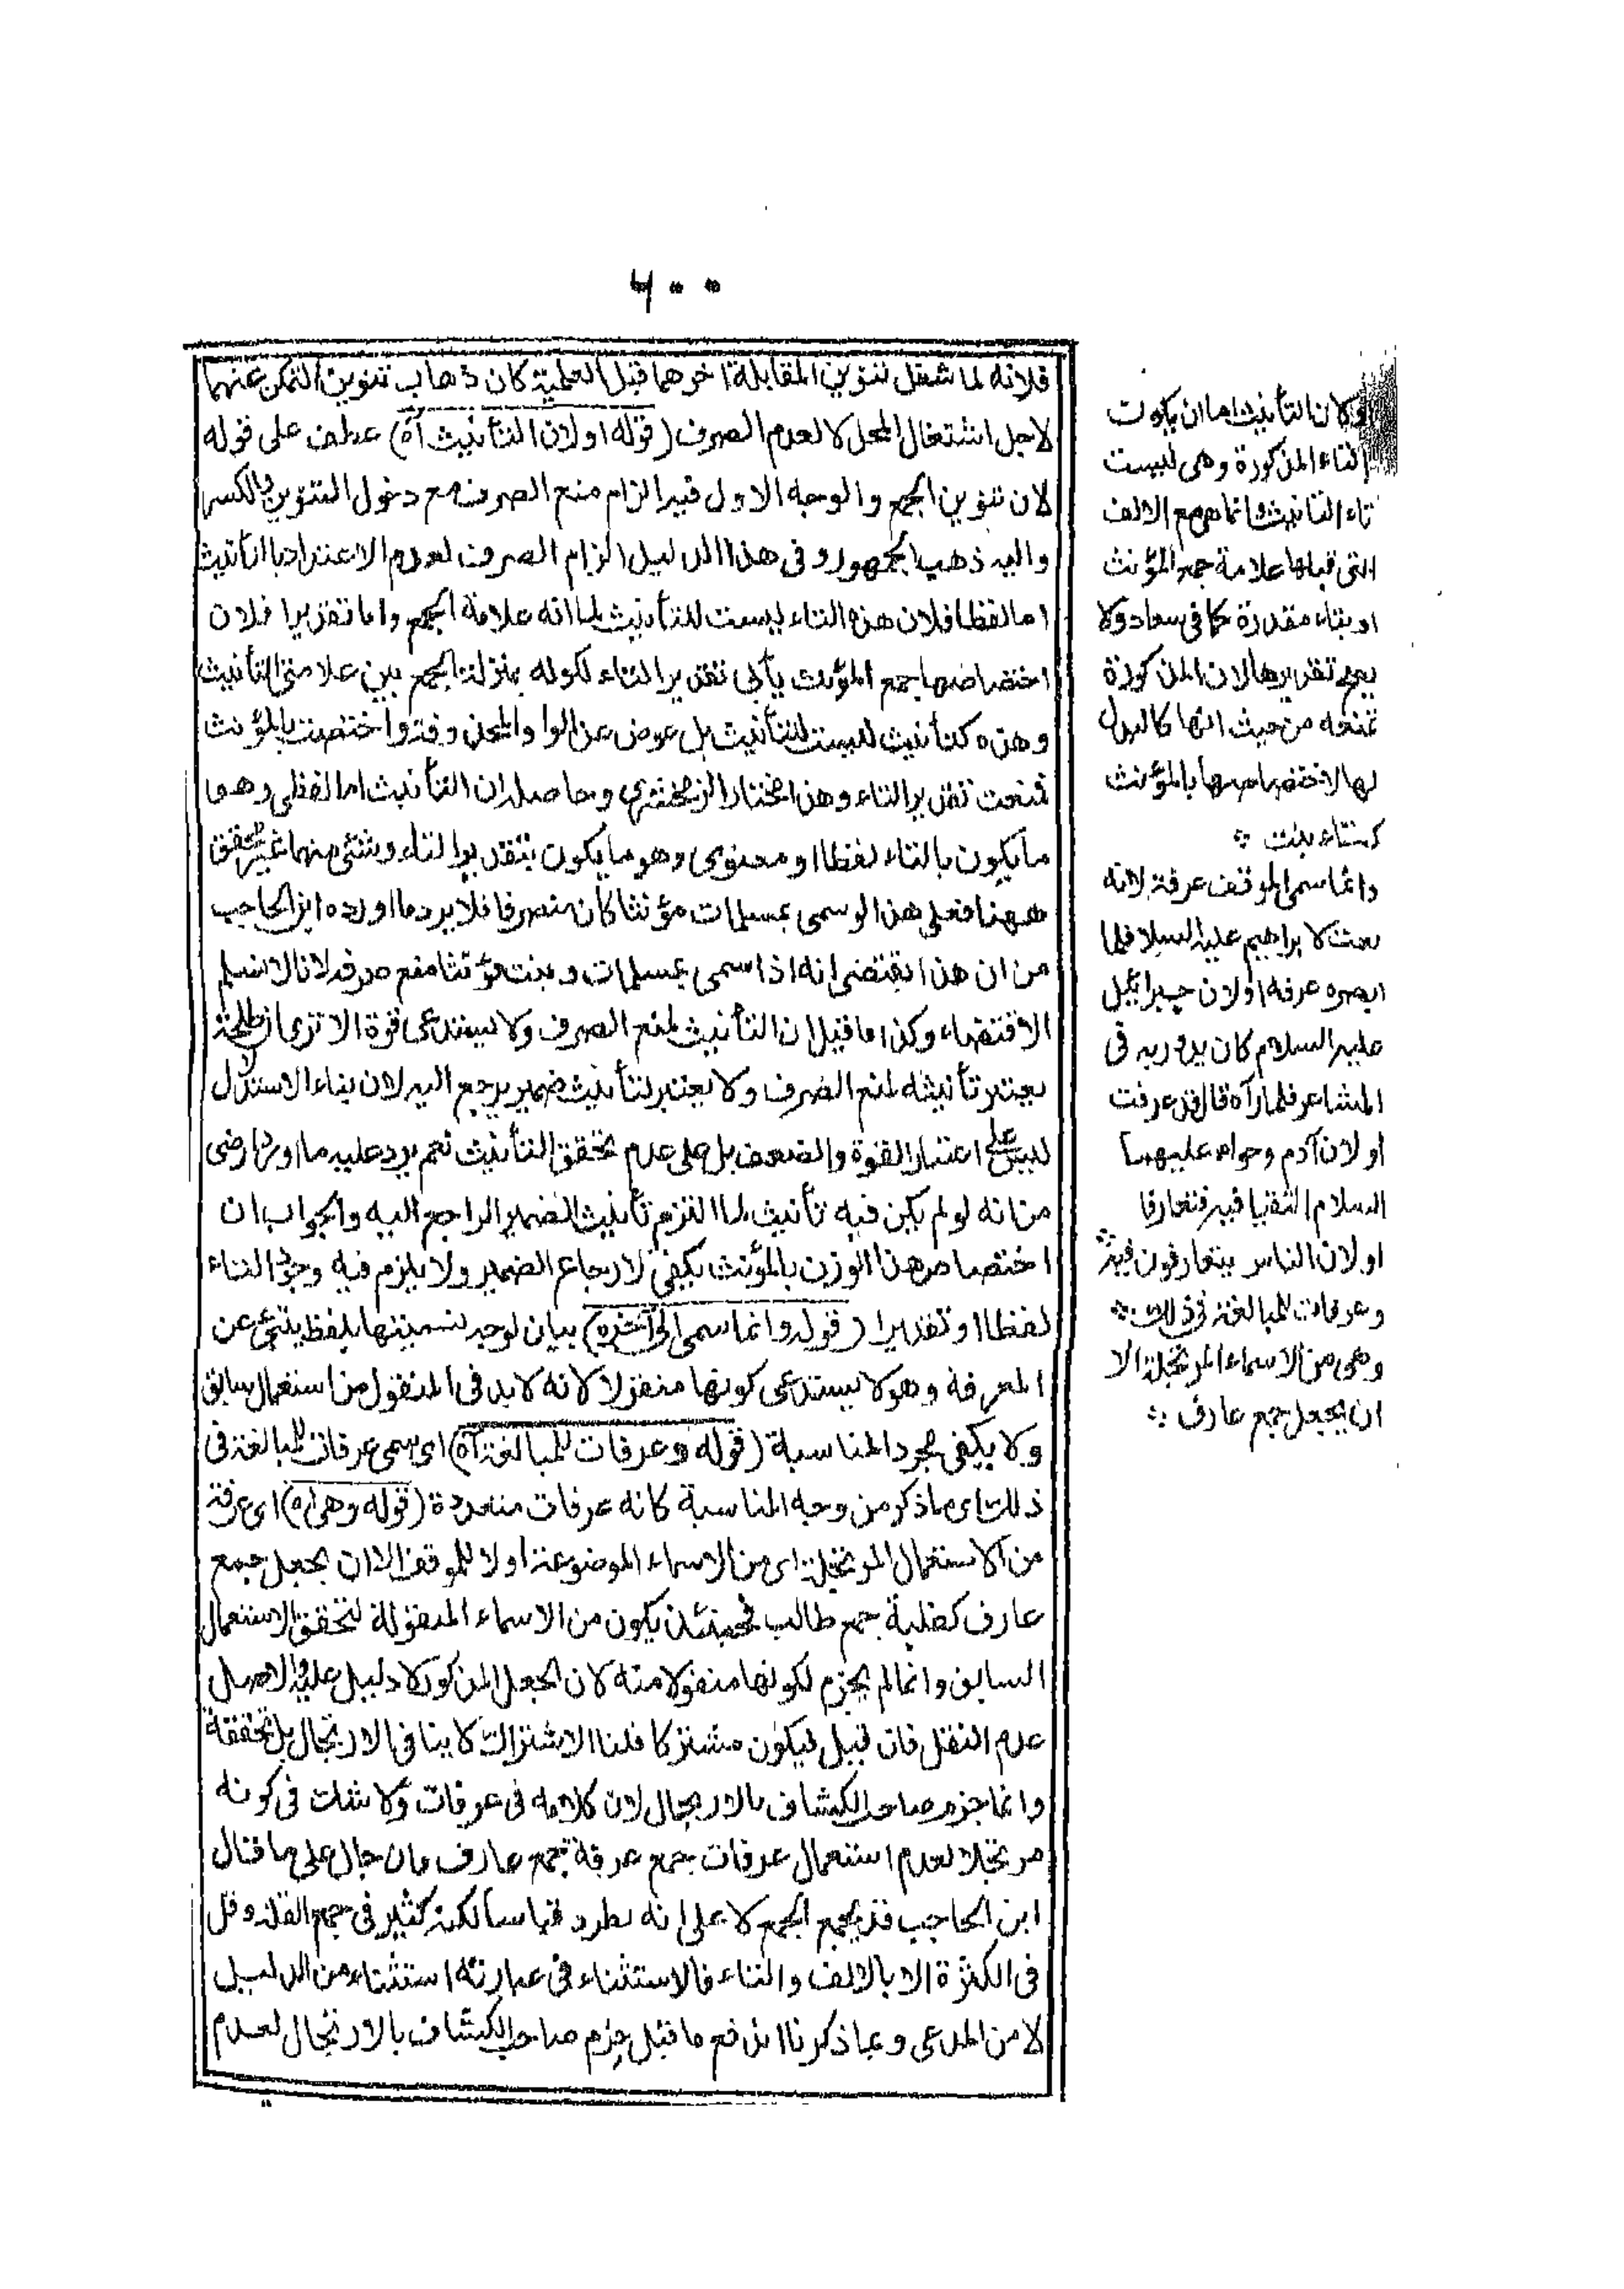 ٦٠٠
فلانه لما شغل تنوين المقابلة اخرهما قبل العلمية كان ذهاب تنوين التمكن عنهما
لاجل اشتغال المحل لا لعدم الصرف (قوله او لان التأنيث آه) عطف على قوله
لان تنوين الجمع والوجه الاول فيه الزام منع الصرف مع دخول التنوين والكسر
واليه ذهب الجمهور وفى هذا الدليل الزام الصرف لعدم الاعتداد بالتأنيث
اما لفظا فلان هذه التاء ليست للتأنيث لما انه علامة الجمع واما تقديرا فلان
اختصاصها بجمع المؤنث يأبى تقدير التاء لكونه بمنزلة الجمع بين علامتى التأنيث
وهذه كتأنيث ليست للتأنيث بل عوض عن الواو المحذوفة واختصت بالمؤنث
فمنعت تقدير التاء وهذا مختار الزمخشرى وحاصله ان التأنيث اما لفظى وهو
ما يكون بالتاء لفظا او معنوى وهو ما يكون بتقدير التاء وشئ منهما غير متحقق
ههنا فعلى هذا لو سمى بمسلمات مؤنثا كان منصرفا فلا يرد ما اورده ابن الحاجب
من ان هذا يقتضى انه اذا سمى بمسلمات وبنت مؤنثا منع صرفه لانا لا نسلم
الاقتضاء وكذا ما قيل ان التأنيث لمنع الصرف ولا يستدعى قوة الا ترى ان طلحة
يعتبر تأنيثه لمنع الصرف ولا يعتبر لتأنيث ضمير يرجع اليه لان بناء الاستدلال
ليس على اعتبار القوة والضعف بل على عدم تحقق التأنيث نعم يرد عليه ما اورده الرضى
من انه لو لم يكن فيه تأنيث لما التزم تأنيث الضمير الراجع اليه والجواب ان
اختصاص هذا الوزن بالمؤنث يكفى لارجاع الضمير ولا يلزم فيه وجود التاء
لفظا او تقديرا (قوله وانما سمى الى آخره) بيان لوجه تسميتها بلفظ ينبئ عن
المعرفة وهو لا يستدعى كونها منقولا لانه لابد فى المنقول من استعمال سابق
ولا يكفى مجرد المناسبة (قوله وعرفات للمبالغة آه) اى سمى عرفات للمبالغة فى
ذلك اى ما ذكر من وجه المناسبة كانه عرفات متعددة (قوله وهى آه) اى عرفة
من الاستعمال المرتجلة اى من الاسماء الموضوعة اولا للموقف الا ان يجعل جمع
عارف كطلبة جمع طالب فحينئذ يكون من الاسماء المنقولة لتحقق الاستعمال
السابق وانما لم يجزم لكونها منقولا منه لان الجعل المذكور لا دليل عليه والاصل
عدم النقل فان قيل فيكون مشتركا قلنا الاشتراك لا ينافى الارتجال بل تحققه
وانما جزم صاحب الكشاف بالارتجال لان كلامه فى عرفات ولا شك فى كونه
مرتجلا لعدم استعمال عرفات جمع عرفة جمع عارف وان جاز على ما قال
ابن الحاجب قد يجمع الجمع لا على انه يطرد قياسا لكنه كثير فى جمع القلة وقل
فى الكثرة الا بالالف والتاء فالاستثناء فى عبارته استثناء من الدليل
لا من المدعى وبما ذكرنا اندفع ما قيل جزم صاحب الكشاف بالارتجال لعدم
او لان التأنيث اما ان يكون
بالتاء المذكورة وهى ليست
تاء التأنيث وانما هى مع الالف
التى قبلها علامة جمع المؤنث
او بتاء مقدرة كما فى سعاد ولا
يصح تقديرها لان المذكورة
تمنعه من حيث انها كالبدل
لها لاختصاصها بالمؤنث
كتاء بنت
وانما سمى الموقف عرفة لانه
نعت لابراهيم عليه السلام فلما
ابصره عرفه او لان جبرائيل
عليه السلام كان يدور به فى
المشاعر فلما رآه قال قد عرفت
او لان آدم وحواء عليهما
السلام التقيا فيه فتعارفا
او لان الناس يتعارفون فيه
وعرفات للمبالغة فى ذلك
وهى من الاسماء المرتجلة الا
ان يجعل جمع عارف